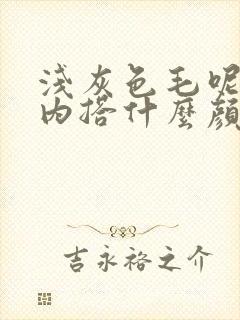 淺灰色毛呢
內搭什麼顏
吉永裕之介